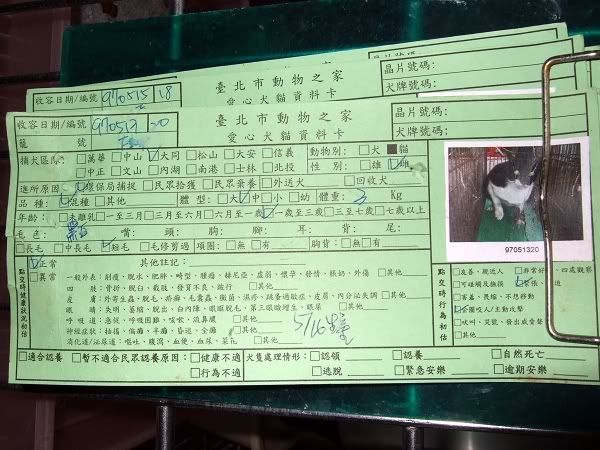 收容日期/編號 970515 18
臺北市動物之家
愛心犬貓資料卡
晶片號碼:
犬牌號碼:
收容日期/編號 970513 20
籠 號
臺北市動物之家
愛心犬貓資料卡
晶片號碼:
犬牌號碼:
捕犬區: □萬華 □中山 ☑大同 □松山 □大安 □信義 動物別: □犬 ■貓
□中正 □文山 □內湖 □南港 □士林 □北投 性 別: □雄 ☑雌
進所原因: ☑環保局捕捉 □民眾拾獲 □民眾棄養 □外送犬 □回收犬
品 種: ☑混種 □其他 體 型: □大 ☑中 □小 □幼 體重: 3 Kg
年齡: □未離乳 □一至三月 □三月至六月 □六月至一歲 ☑一歲至三歲 □三至七歲 □七歲以上
毛 色: 黑白 嘴: 頭: 胸: 腳: 耳: 背: 尾:
□長毛 □中長毛 ☑短毛 □毛修剪過 項圈: □無 □有 胸背: □無 □有
97051320
點交時健康狀況初估
☑正常 其他註記:
□異常 一般外表: 削瘦、脫水、肥胖、畸型、腫瘤、赫尼亞、虛弱、懷孕、發情、脹奶、外傷 □其他
四 肢: 骨折、脫臼、截肢、發育不良、跛行 □其他
皮 膚: 外寄生蟲、脫毛、疥癬、毛囊蟲、黴菌、濕疹、跳蚤過敏症、皮屑、內分泌失調 □其他
眼 睛: 失明、萎縮、脫出、白內障、眼瞼脫毛、第三眼瞼增生、眼屎 □其他
呼 吸 道: 急促、呼吸困難、咳嗽、流鼻膿 □其他
神經症狀: 抽搐、偏癱、半癱、昏迷、全癱 □其他
消化道/泌尿道: 嘔吐、腹瀉、血便、血尿、蛋花 □其他
5/16
點交時行為初估
□友善、親近人 □非常好 、四處觀察
□可碰觸及檢摸 ☑緊張、 迫
□害羞、畏縮、不想移動
☑企圖咬人/主動攻擊
□吠叫、哭號、發出威脅聲
□其他
□適合認養 □暫不適合民眾認養原因: □健康不適 犬隻處理情形: □認領 □認養 □自然死亡
□行為不適 □逃脫 □緊急安樂 □逾期安樂